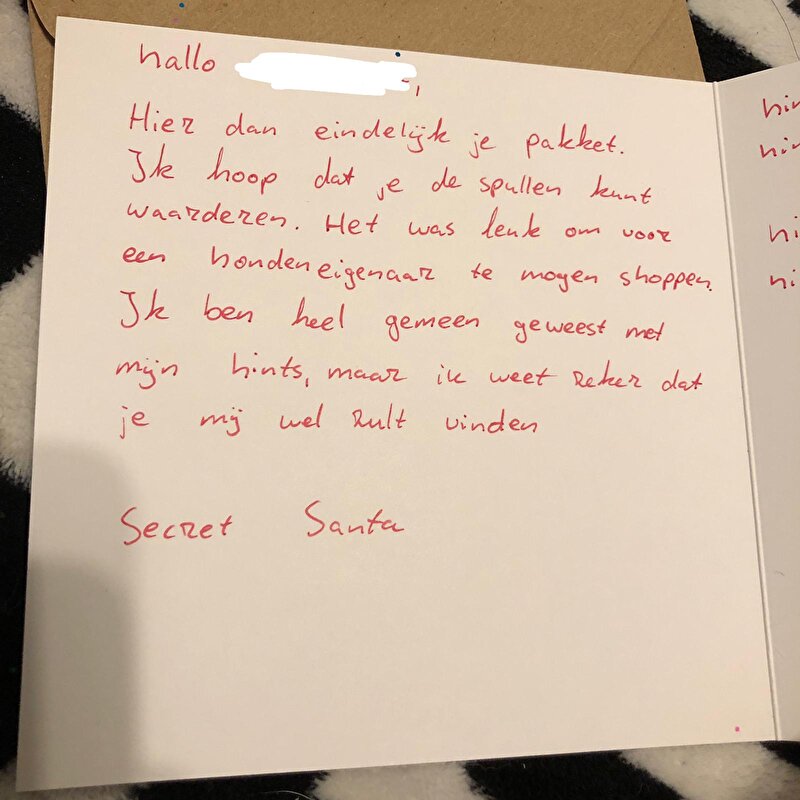 hallo
Hier dan eindelijk je pakket.
Ik hoop dat je de spullen kunt
waarderen. Het was leuk om voor
een hondeneigenaar te mogen shoppen.
Ik ben heel gemeen geweest met
mijn hints, maar ik weet zeker dat
je mij wel zult vinden
Secret Santa